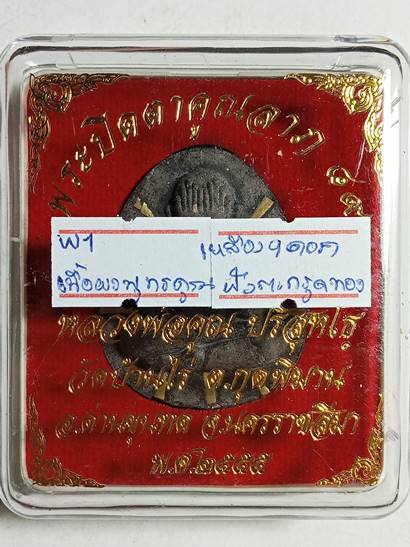 พระปิดตาคูณลาภ
พ1 เหลือง 9 ดอก
เนื้อผงพุทธคูณ ฝังตะกรุดทอง
หลวงพ่อคูณ ปริสุทโธ
วัดบ้านไร่ ต.กุดพิมาน
อ.ด่านขุนทด จ.นครราชสีมา
พ.ศ.๒๕๕๕